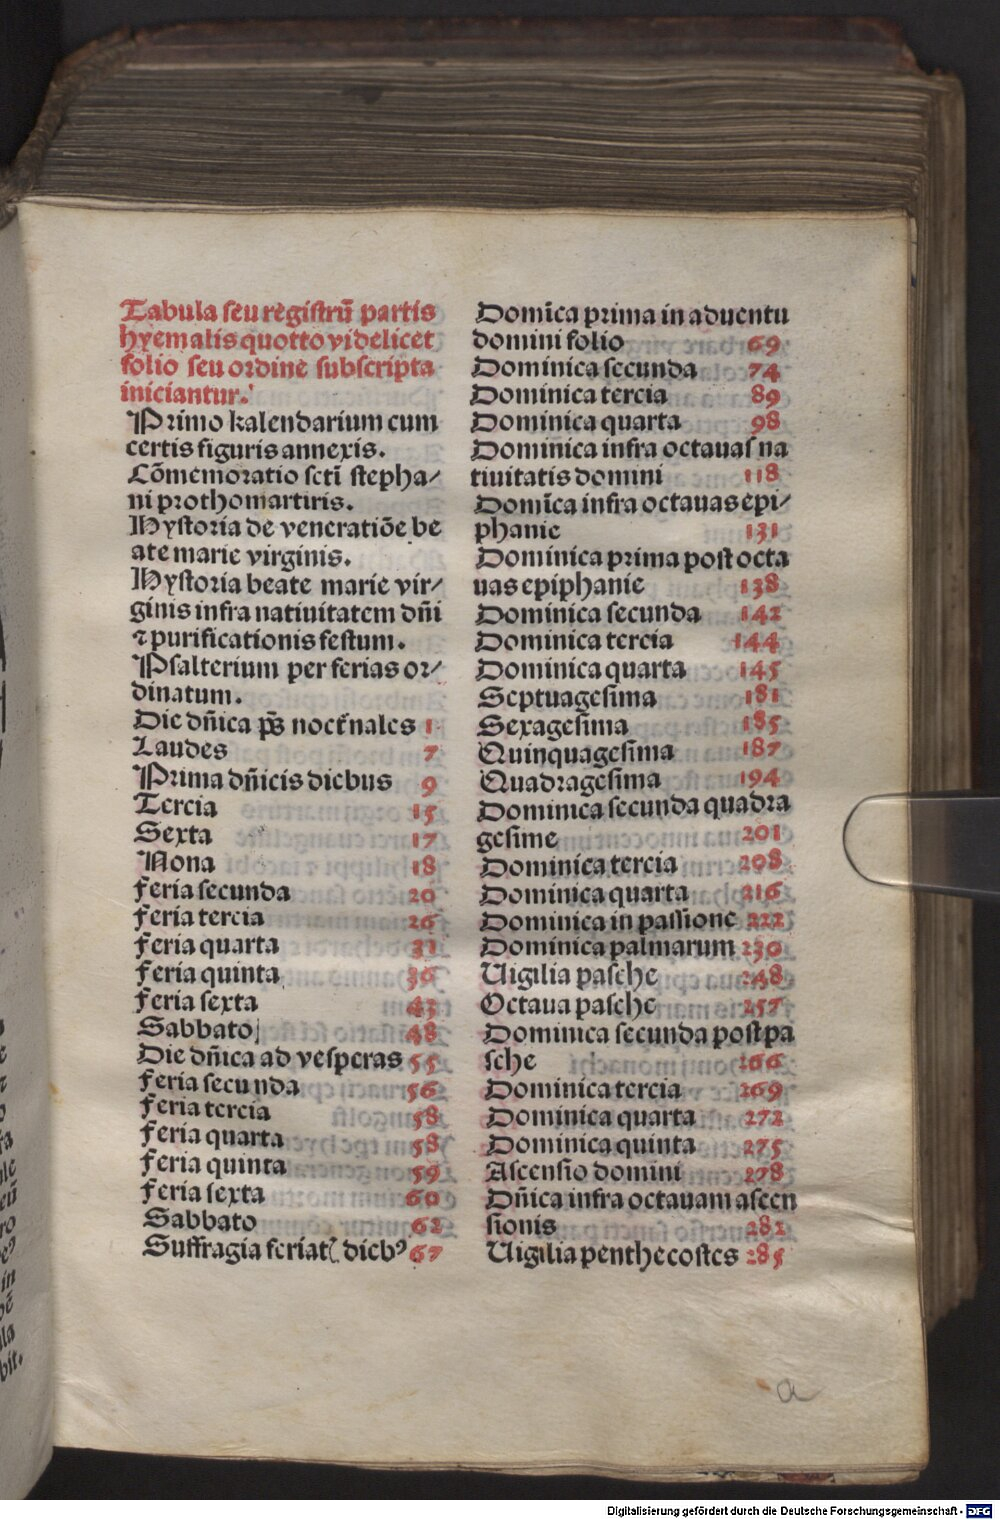 Tabula seu registrū partis
hyemalis quotto videlicet
folio seu ordine subscripta
iniciantur.
Primo kalendarium cum
certis figuris annexis.
Cōmemoratio sctī stepha/
ni prothomartiris.
Hystoria de veneratiōe be
ate marie virginis.
Hystoria beate marie vir/
ginis infra natiuitatem dñi
⁊ purificationis festum.
Psalterium per ferias or/
dinatum.
Die dñica p̄s noct̄nales 1
Laudes 7
Prima dñicis diebus 9
Tercia 15
Sexta 17
Nona 18
feria secunda 20
feria tercia 26
feria quarta 31
feria quinta 36
feria sexta 43
Sabbato 48
Die dñica ad vesperas 55
feria secunda 56
feria tercia 58
feria quarta 58
feria quinta 59
feria sexta 60
Sabbato 62
Suffragia feriat dieb⁹ 67
Domīca prima in aduentu
domini folio 69
Dominica secunda 74
Dominica tercia 89
Dominica quarta 98
Dominica infra octauas na
tiuitatis domini 118
Domīca infra octauas epi/
phanie 131
Dominica prima post octa
uas epiphanie 138
Dominica secunda 142
Dominica tercia 144
Dominica quarta 145
Septuagesima 181
Sexagesima 185
Quinquagesima 187
Quadragesima 194
Dominica secunda quadra
gesime 201
Dominica tercia 208
Dominica quarta 216
Dominica in passione 222
Dominica palmarum 230
Uigilia pasche 248
Octaua pasche 257
Dominica secunda post pa
sche 266
Dominica tercia 269
Dominica quarta 272
Dominica quinta 275
Ascensio domini 278
Dñica infra octauam ascen
sionis 281
Uigilia penthecostes 285
a
Digitalisierung gefördert durch die Deutsche Forschungsgemeinschaft - DFG